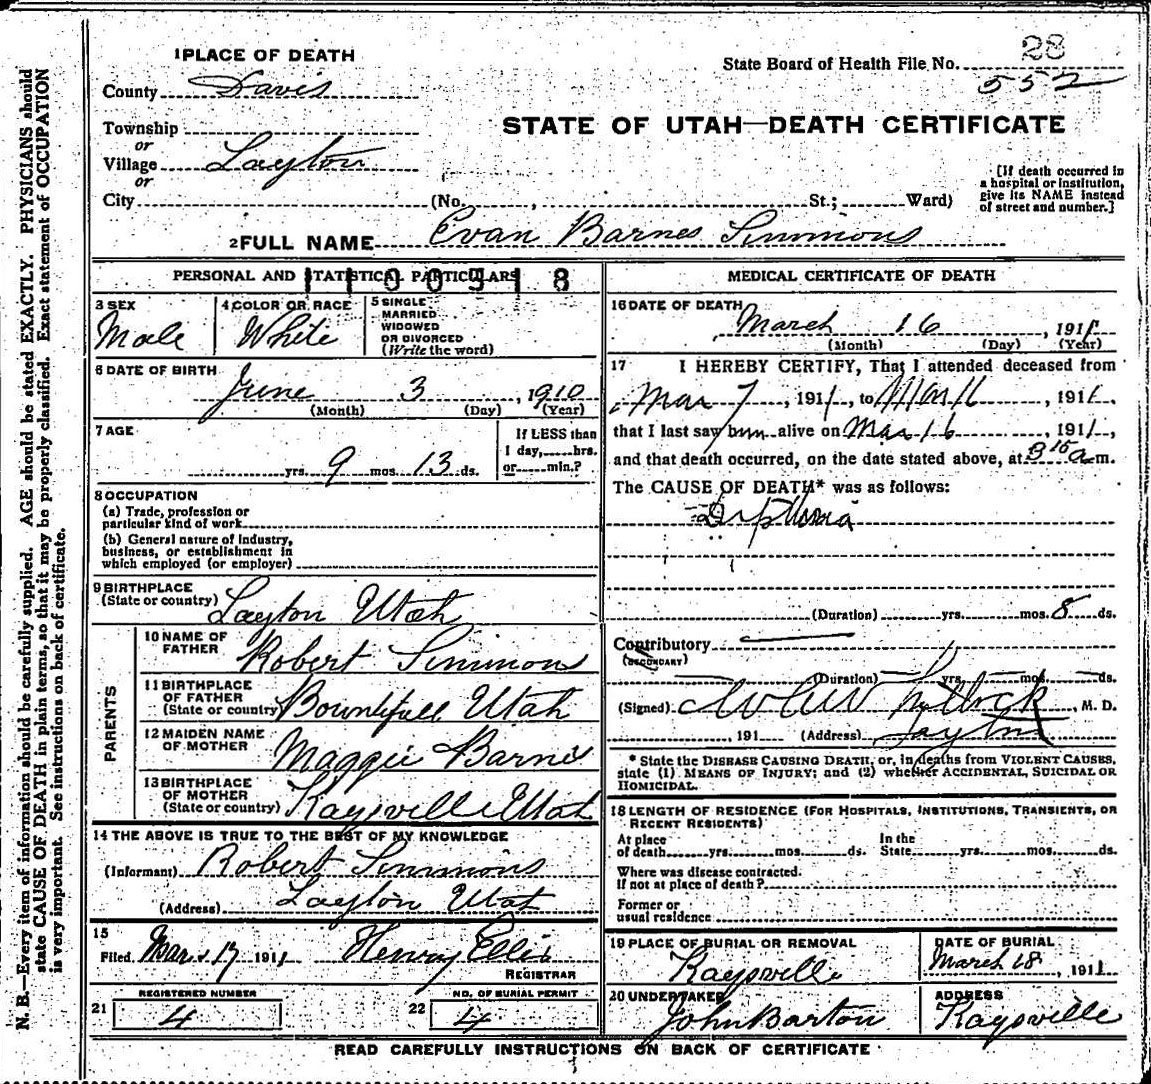 28
State Board of Health File No. 552
1 PLACE OF DEATH
County Davis
STATE OF UTAH—DEATH CERTIFICATE
Township
or
Village Layton
or
City (No. , St.; Ward)
[If death occurred in
a hospital or institution,
give its NAME instead
of street and number.]
2 FULL NAME Evan Barnes Simmons
PERSONAL AND STATISTICAL PARTICULARS
1100918
3 SEX
Male
4 COLOR OR RACE
White
5 SINGLE
MARRIED
WIDOWED
OR DIVORCED
(Write the word)
6 DATE OF BIRTH
June 3, 1910
(Month) (Day) (Year)
7 AGE
yrs. 9 mos. 13 ds.
If LESS than
1 day, hrs.
or min.?
8 OCCUPATION
(a) Trade, profession or
particular kind of work
(b) General nature of industry,
business, or establishment in
which employed (or employer)
9 BIRTHPLACE
(State or country) Layton Utah
PARENTS
10 NAME OF
FATHER Robert Simmons
11 BIRTHPLACE
OF FATHER
(State or country) Bountifull Utah
12 MAIDEN NAME
OF MOTHER Maggie Barnes
13 BIRTHPLACE
OF MOTHER
(State or country) Kaysville Utah
14 THE ABOVE IS TRUE TO THE BEST OF MY KNOWLEDGE
(Informant) Robert Simmons
(Address) Layton Utah
15
Filed Mar 17 1911 Henry Ellis
REGISTRAR
21 REGISTERED NUMBER
4
22 NO. OF BURIAL PERMIT
4
MEDICAL CERTIFICATE OF DEATH
16 DATE OF DEATH
March 16, 1911
(Month) (Day) (Year)
17 I HEREBY CERTIFY, That I attended deceased from
Mar 7, 1911, to Mar 16, 1911,
that I last saw him alive on Mar 16, 1911,
and that death occurred, on the date stated above, at 3 15 a m.
The CAUSE OF DEATH* was as follows:
Diptheria
(Duration) yrs. mos. 8 ds.
Contributory
(SECONDARY)
(Duration) yrs. mos. ds.
(Signed) , M. D.
, 191 (Address) Layton
* State the DISEASE CAUSING DEATH, or, in deaths from VIOLENT CAUSES,
state (1) MEANS OF INJURY; and (2) whether ACCIDENTAL, SUICIDAL OR
HOMICIDAL.
18 LENGTH OF RESIDENCE (FOR HOSPITALS, INSTITUTIONS, TRANSIENTS, OR
RECENT RESIDENTS)
At place
of death yrs. mos. ds.
In the
State yrs. mos. ds.
Where was disease contracted,
if not at place of death?
Former or
usual residence
19 PLACE OF BURIAL OR REMOVAL
Kaysville
DATE OF BURIAL
March 18, 1911
20 UNDERTAKER
John Barton
ADDRESS
Kaysville
READ CAREFULLY INSTRUCTIONS ON BACK OF CERTIFICATE
N. B.—Every item of information should be carefully supplied. AGE should be stated EXACTLY. PHYSICIANS should
state CAUSE OF DEATH in plain terms, so that it may be properly classified. Exact statement of OCCUPATION
is very important. See instructions on back of certificate.